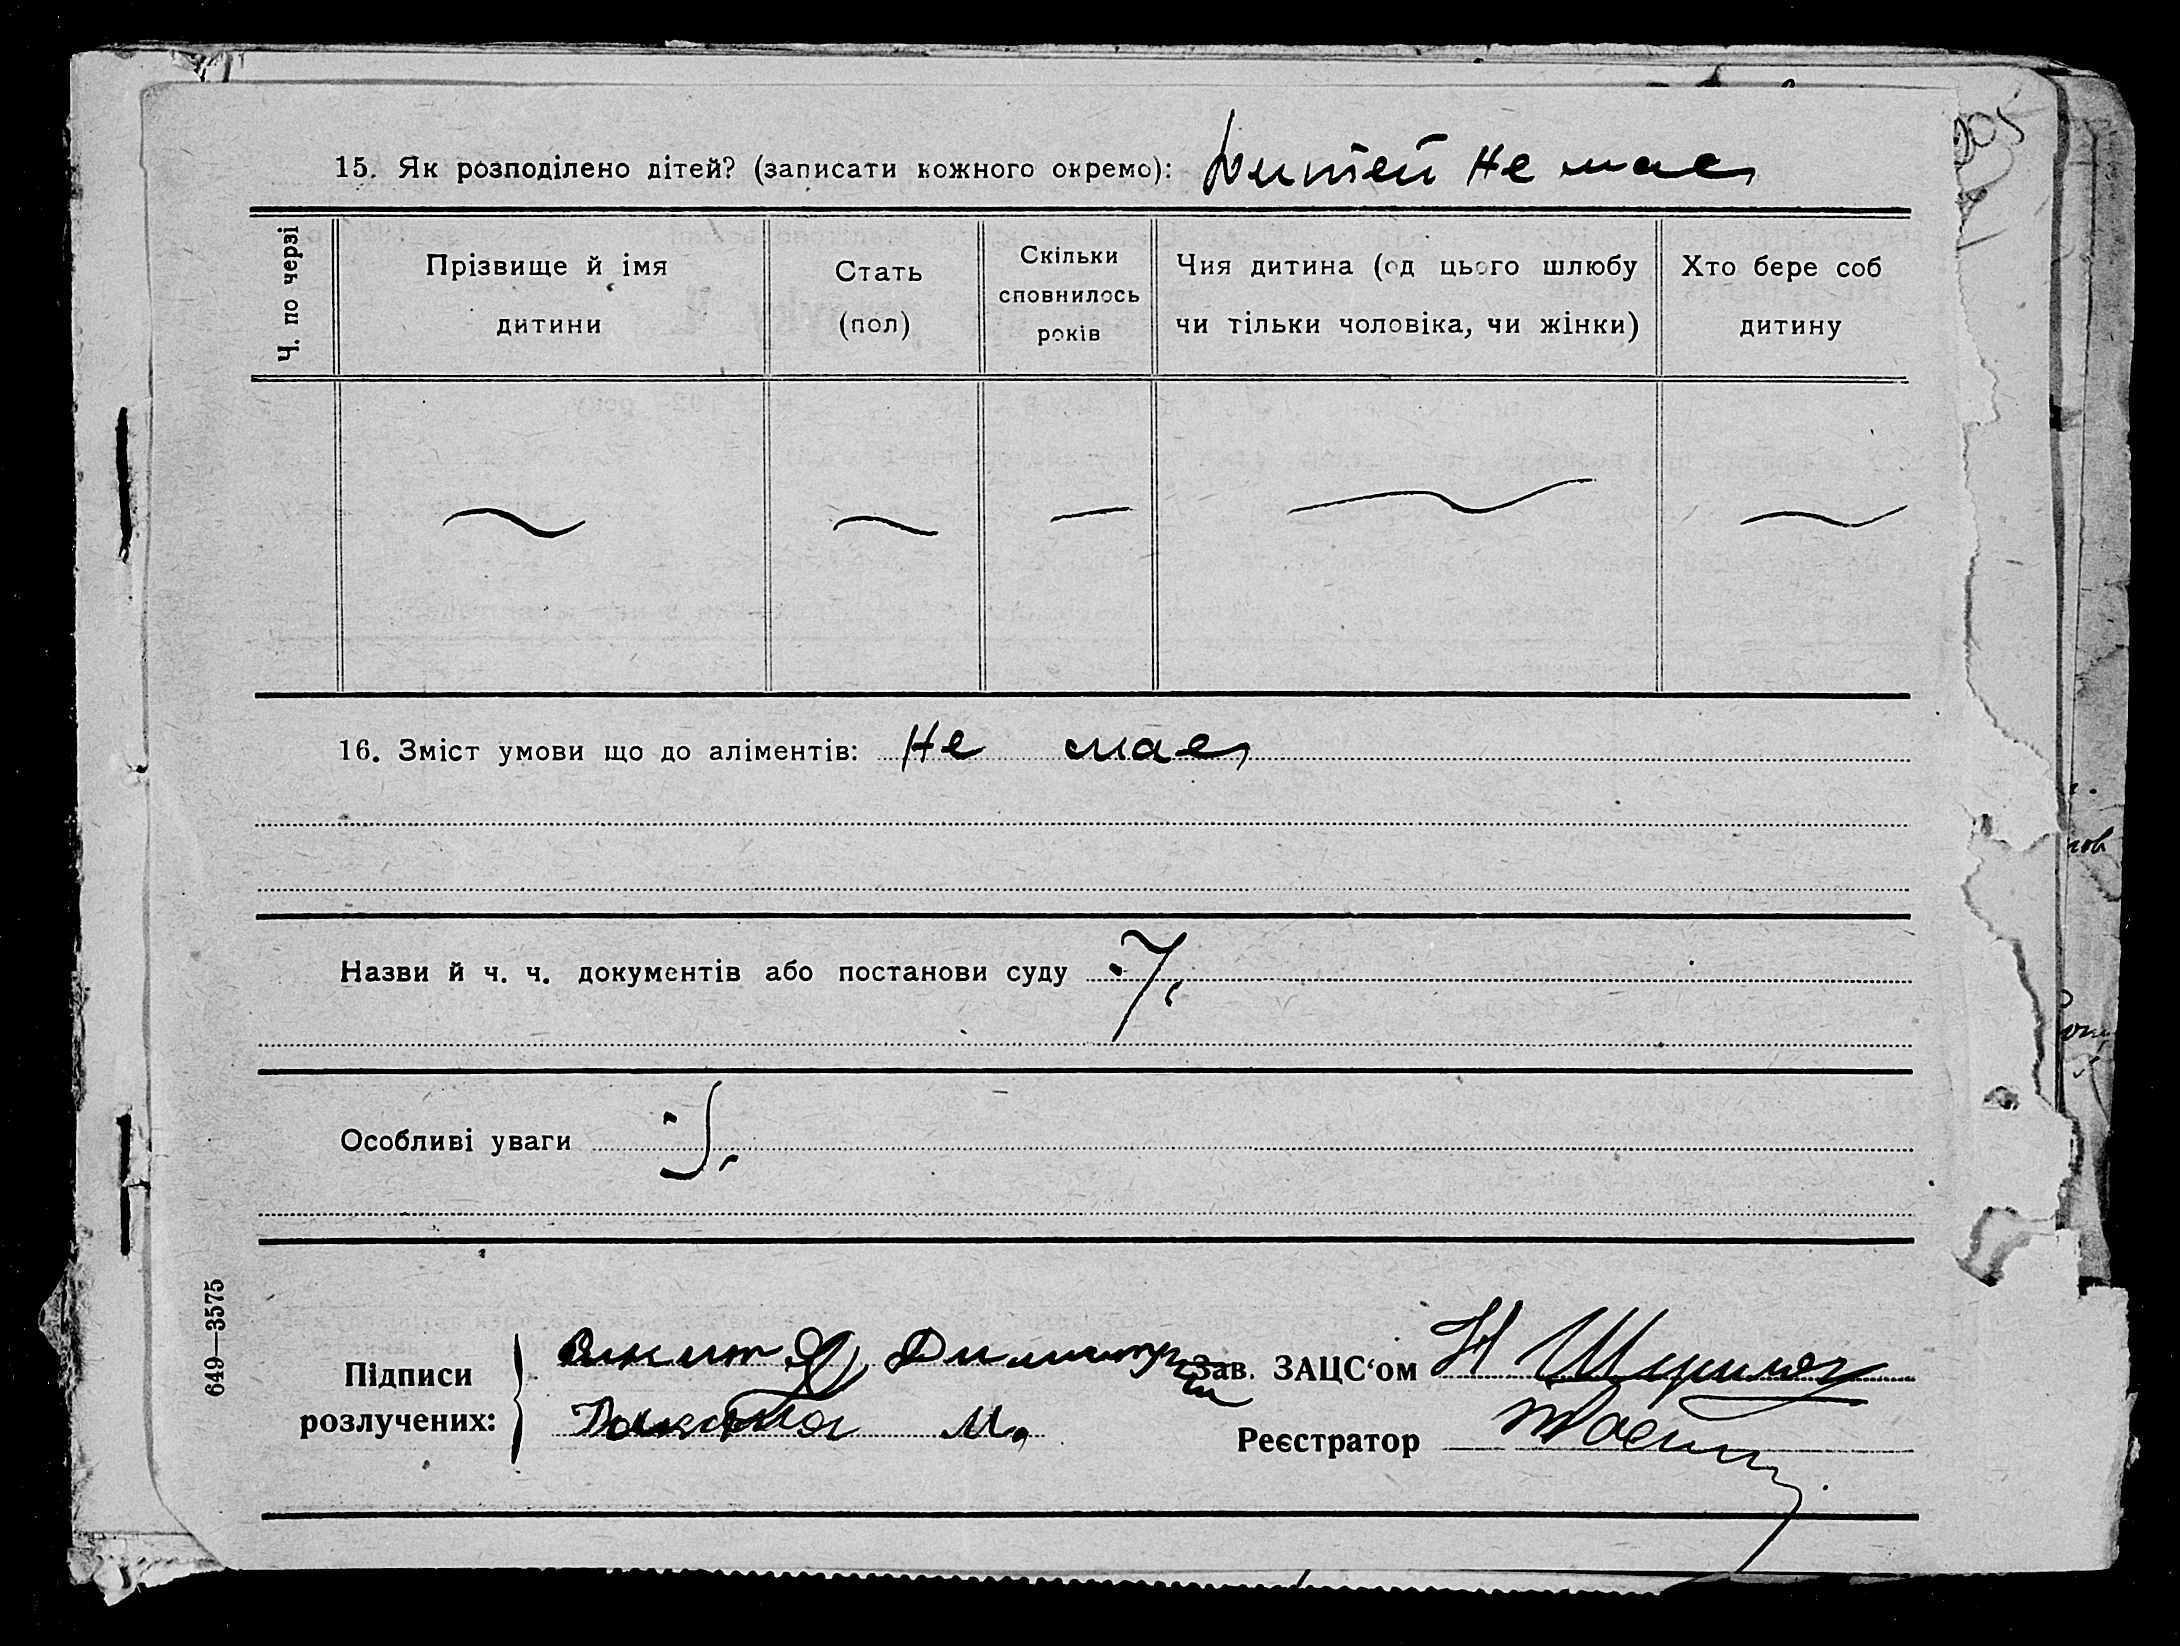 205
15. Як розподілено дітей? (записати кожного окремо): Дитей не має
Ч. по черзі
Прізвище й імя дитини
Стать (пол)
Скільки сповнилось років
Чия дитина (од цього шлюбу чи тільки чоловіка, чи жінки)
Хто бере соб дитину
16. Зміст умови що до аліментів: не має
Назви й ч. ч. документів або постанови суду
Особливі уваги
649—3575
Підписи розлучених:
Зав. ЗАЦС‘ом
М.
Реєстратор